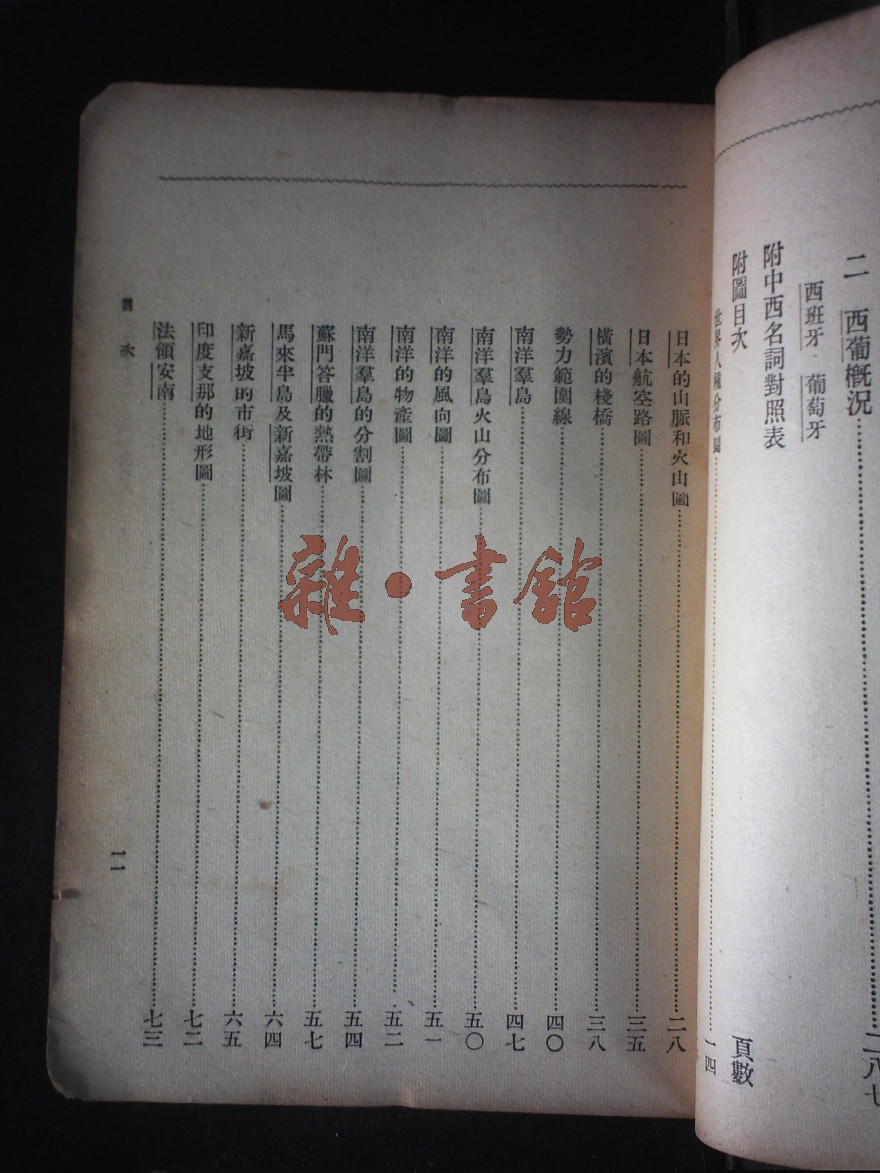 二 西葡概况……二八七
西班牙 葡萄牙
附中西名詞對照表
附圖目次 頁數
世界人種分布圖……一四
日本的山脈和火山圖……二八
日本航空路圖……三五
橫濱的棧橋……三八
勢力範圍線……四〇
南洋羣島……四七
南洋羣島火山分布圖……五〇
南洋的風向圖……五一
南洋的物產圖……五二
南洋羣島的分割圖……五四
蘇門答臘的熱帶林……五七
馬來半島及新嘉坡圖……六四
新嘉坡的市街……六五
印度支那的地形圖……七二
法領安南……七三
目次 一一
雜·書館